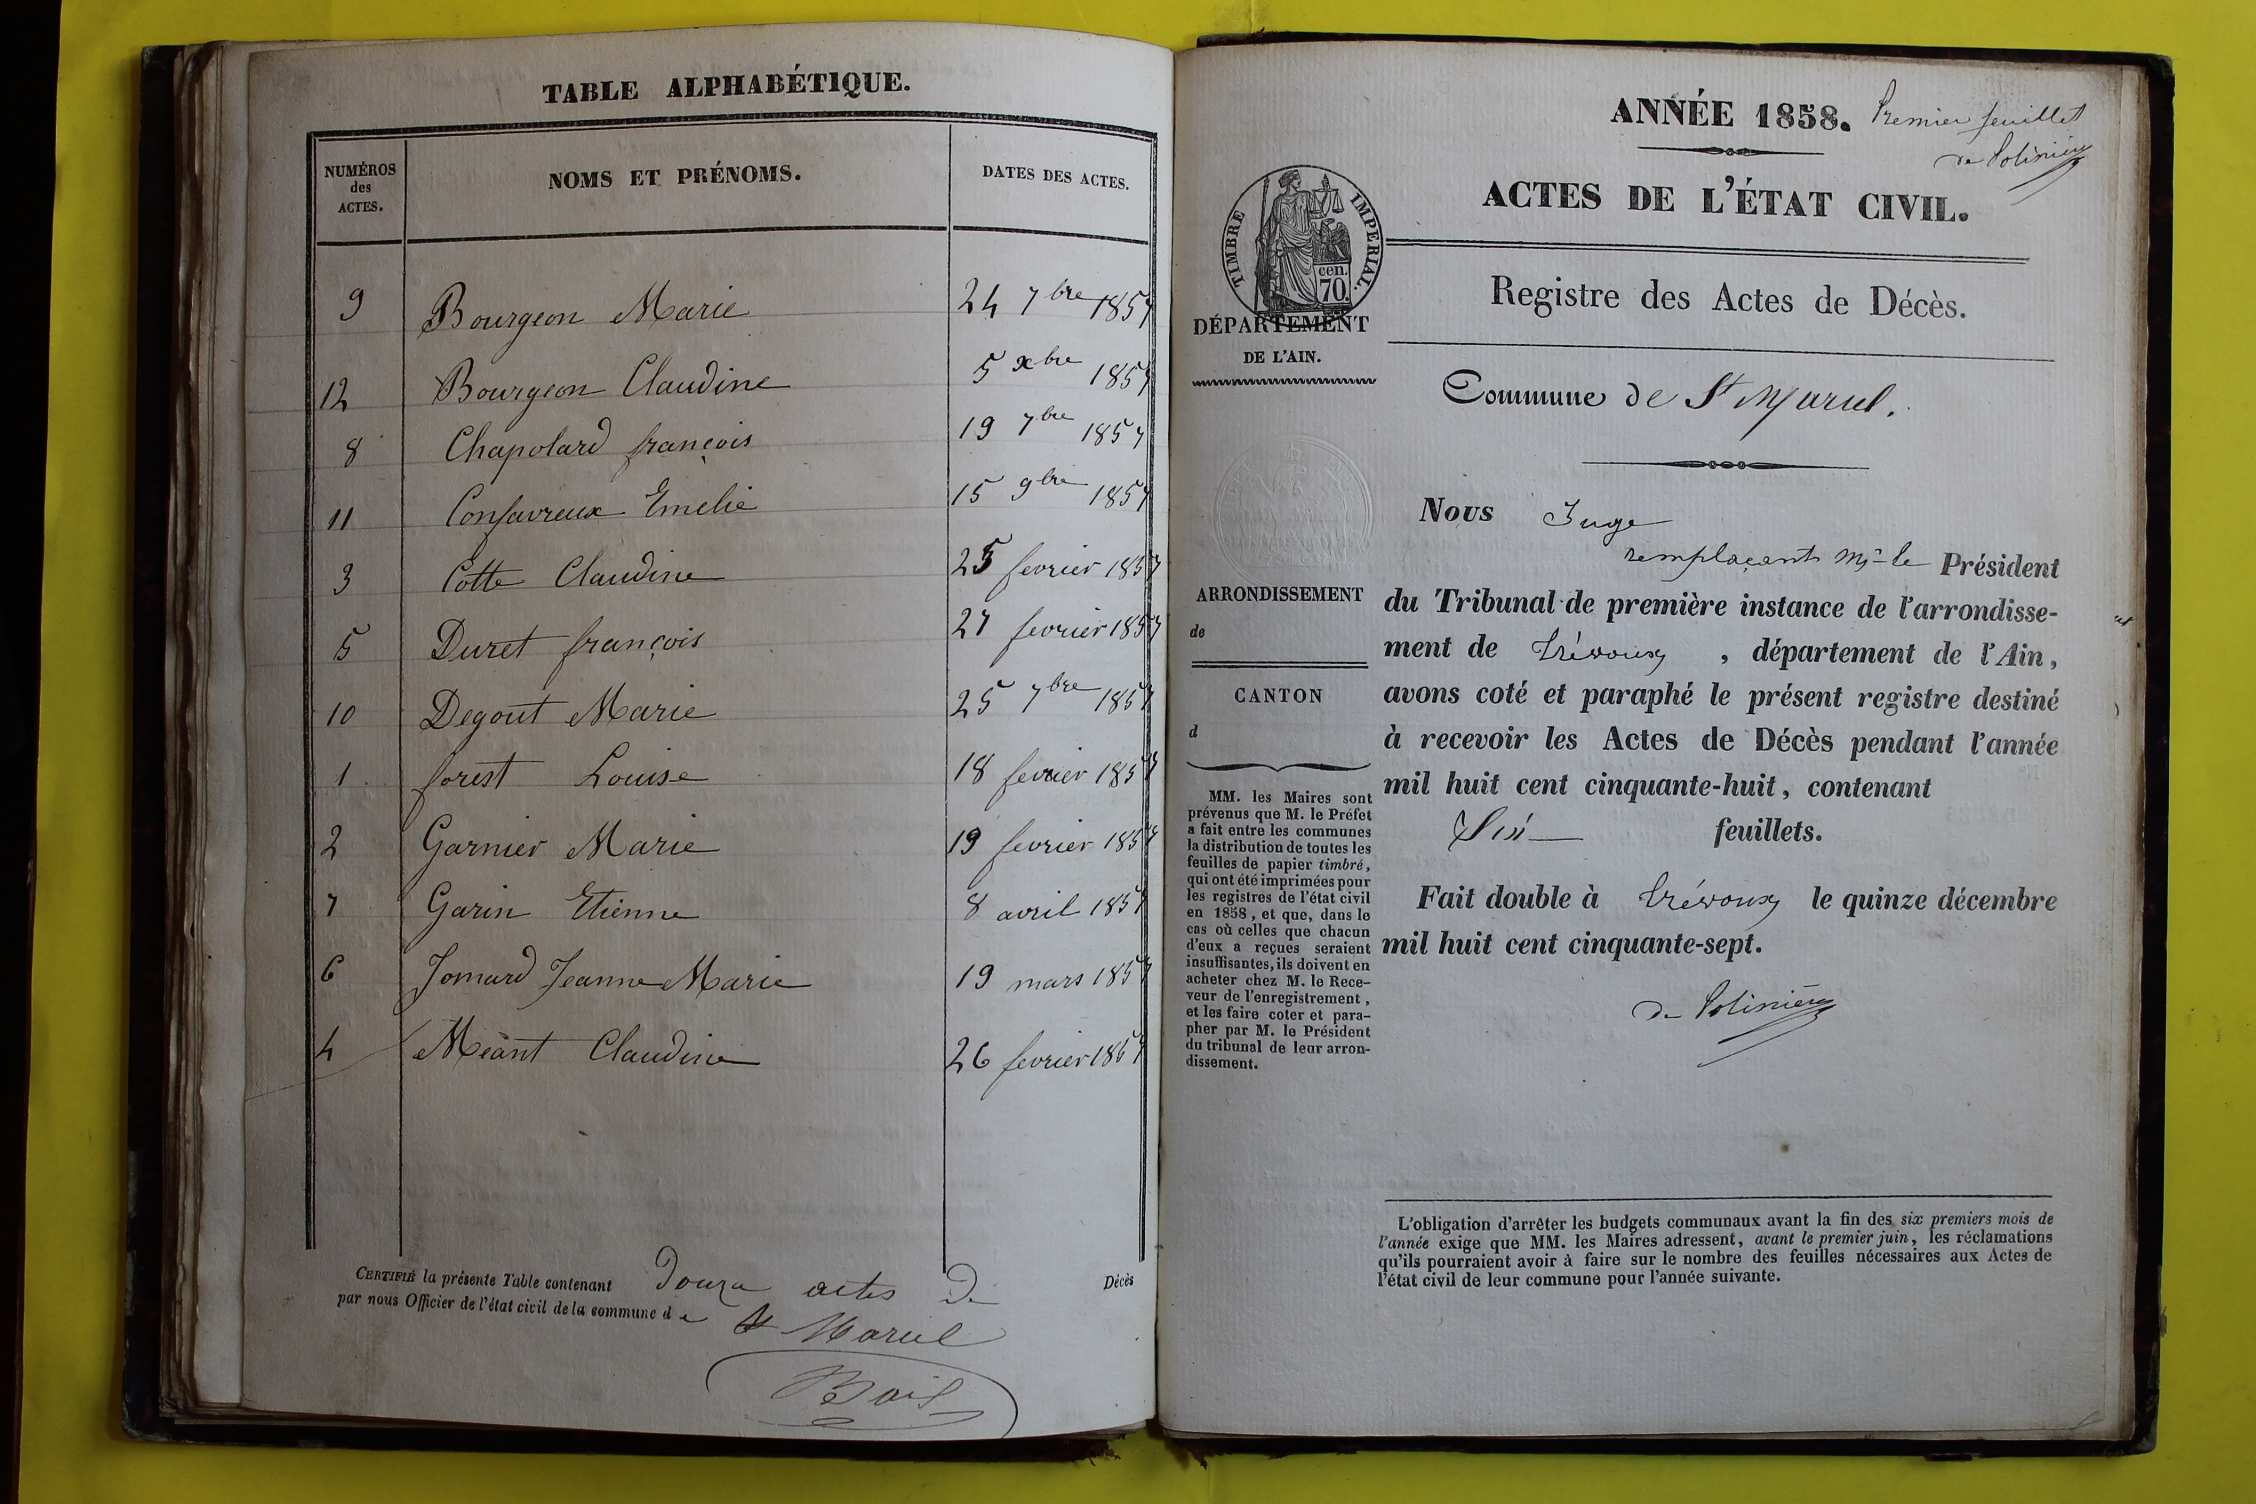 TABLE ALPHABÉTIQUE.
NUMÉROS des ACTES. NOMS ET PRÉNOMS. DATES DES ACTES.
9 Bourgeon Marie 24 7bre 1857
12 Bourgeon Claudine 5 xbre 1857
8 Chapolard françois 19 7bre 1857
11 Confavreux Emelie 15 9bre 1857
3 Cotte Claudine 25 fevrier 1857
5 Duret françois 27 fevrier 1857
10 Degout Marie 25 7bre 1857
1 forest Louise 18 fevrier 1857
2 Garnier Marie 19 fevrier 1857
7 Garin Etienne 8 avril 1857
6 Jomard Jeanne Marie 19 mars 1857
4 Méant Claudine 26 fevrier 1857
CERTIFIÉ la présente Table contenant Douze actes De Décès
par nous Officier de l'état civil de la commune d e St Marcel
ANNÉE 1858. Premier feuillet
de Polinière
ACTES DE L'ÉTAT CIVIL.
TIMBRE IMPERIAL.
cen.
70
DÉPARTEMENT
DE L'AIN.
Registre des Actes de Décès.
Commune de St Marcel.
ARRONDISSEMENT
de
CANTON
d
MM. les Maires sont
prévenus que M. le Préfet
a fait entre les communes
la distribution de toutes les
feuilles de papier timbré,
qui ont été imprimées pour
les registres de l'état civil
en 1858, et que, dans le
cas où celles que chacun
d'eux a reçues seraient
insuffisantes, ils doivent en
acheter chez M. le Rece-
veur de l'enregistrement,
et les faire coter et para-
pher par M. le Président
du tribunal de leur arron-
dissement.
Nous Juge
remplaçant Mr le Président
du Tribunal de première instance de l'arrondisse-
ment de Trévoux, département de l'Ain,
avons coté et paraphé le présent registre destiné
à recevoir les Actes de Décès pendant l'année
mil huit cent cinquante-huit, contenant
Six feuillets.
Fait double à Trévoux le quinze décembre
mil huit cent cinquante-sept.
de Polinière
L'obligation d'arrêter les budgets communaux avant la fin des six premiers mois de
l'année exige que MM. les Maires adressent, avant le premier juin, les réclamations
qu'ils pourraient avoir à faire sur le nombre des feuilles nécessaires aux Actes de
l'état civil de leur commune pour l'année suivante.